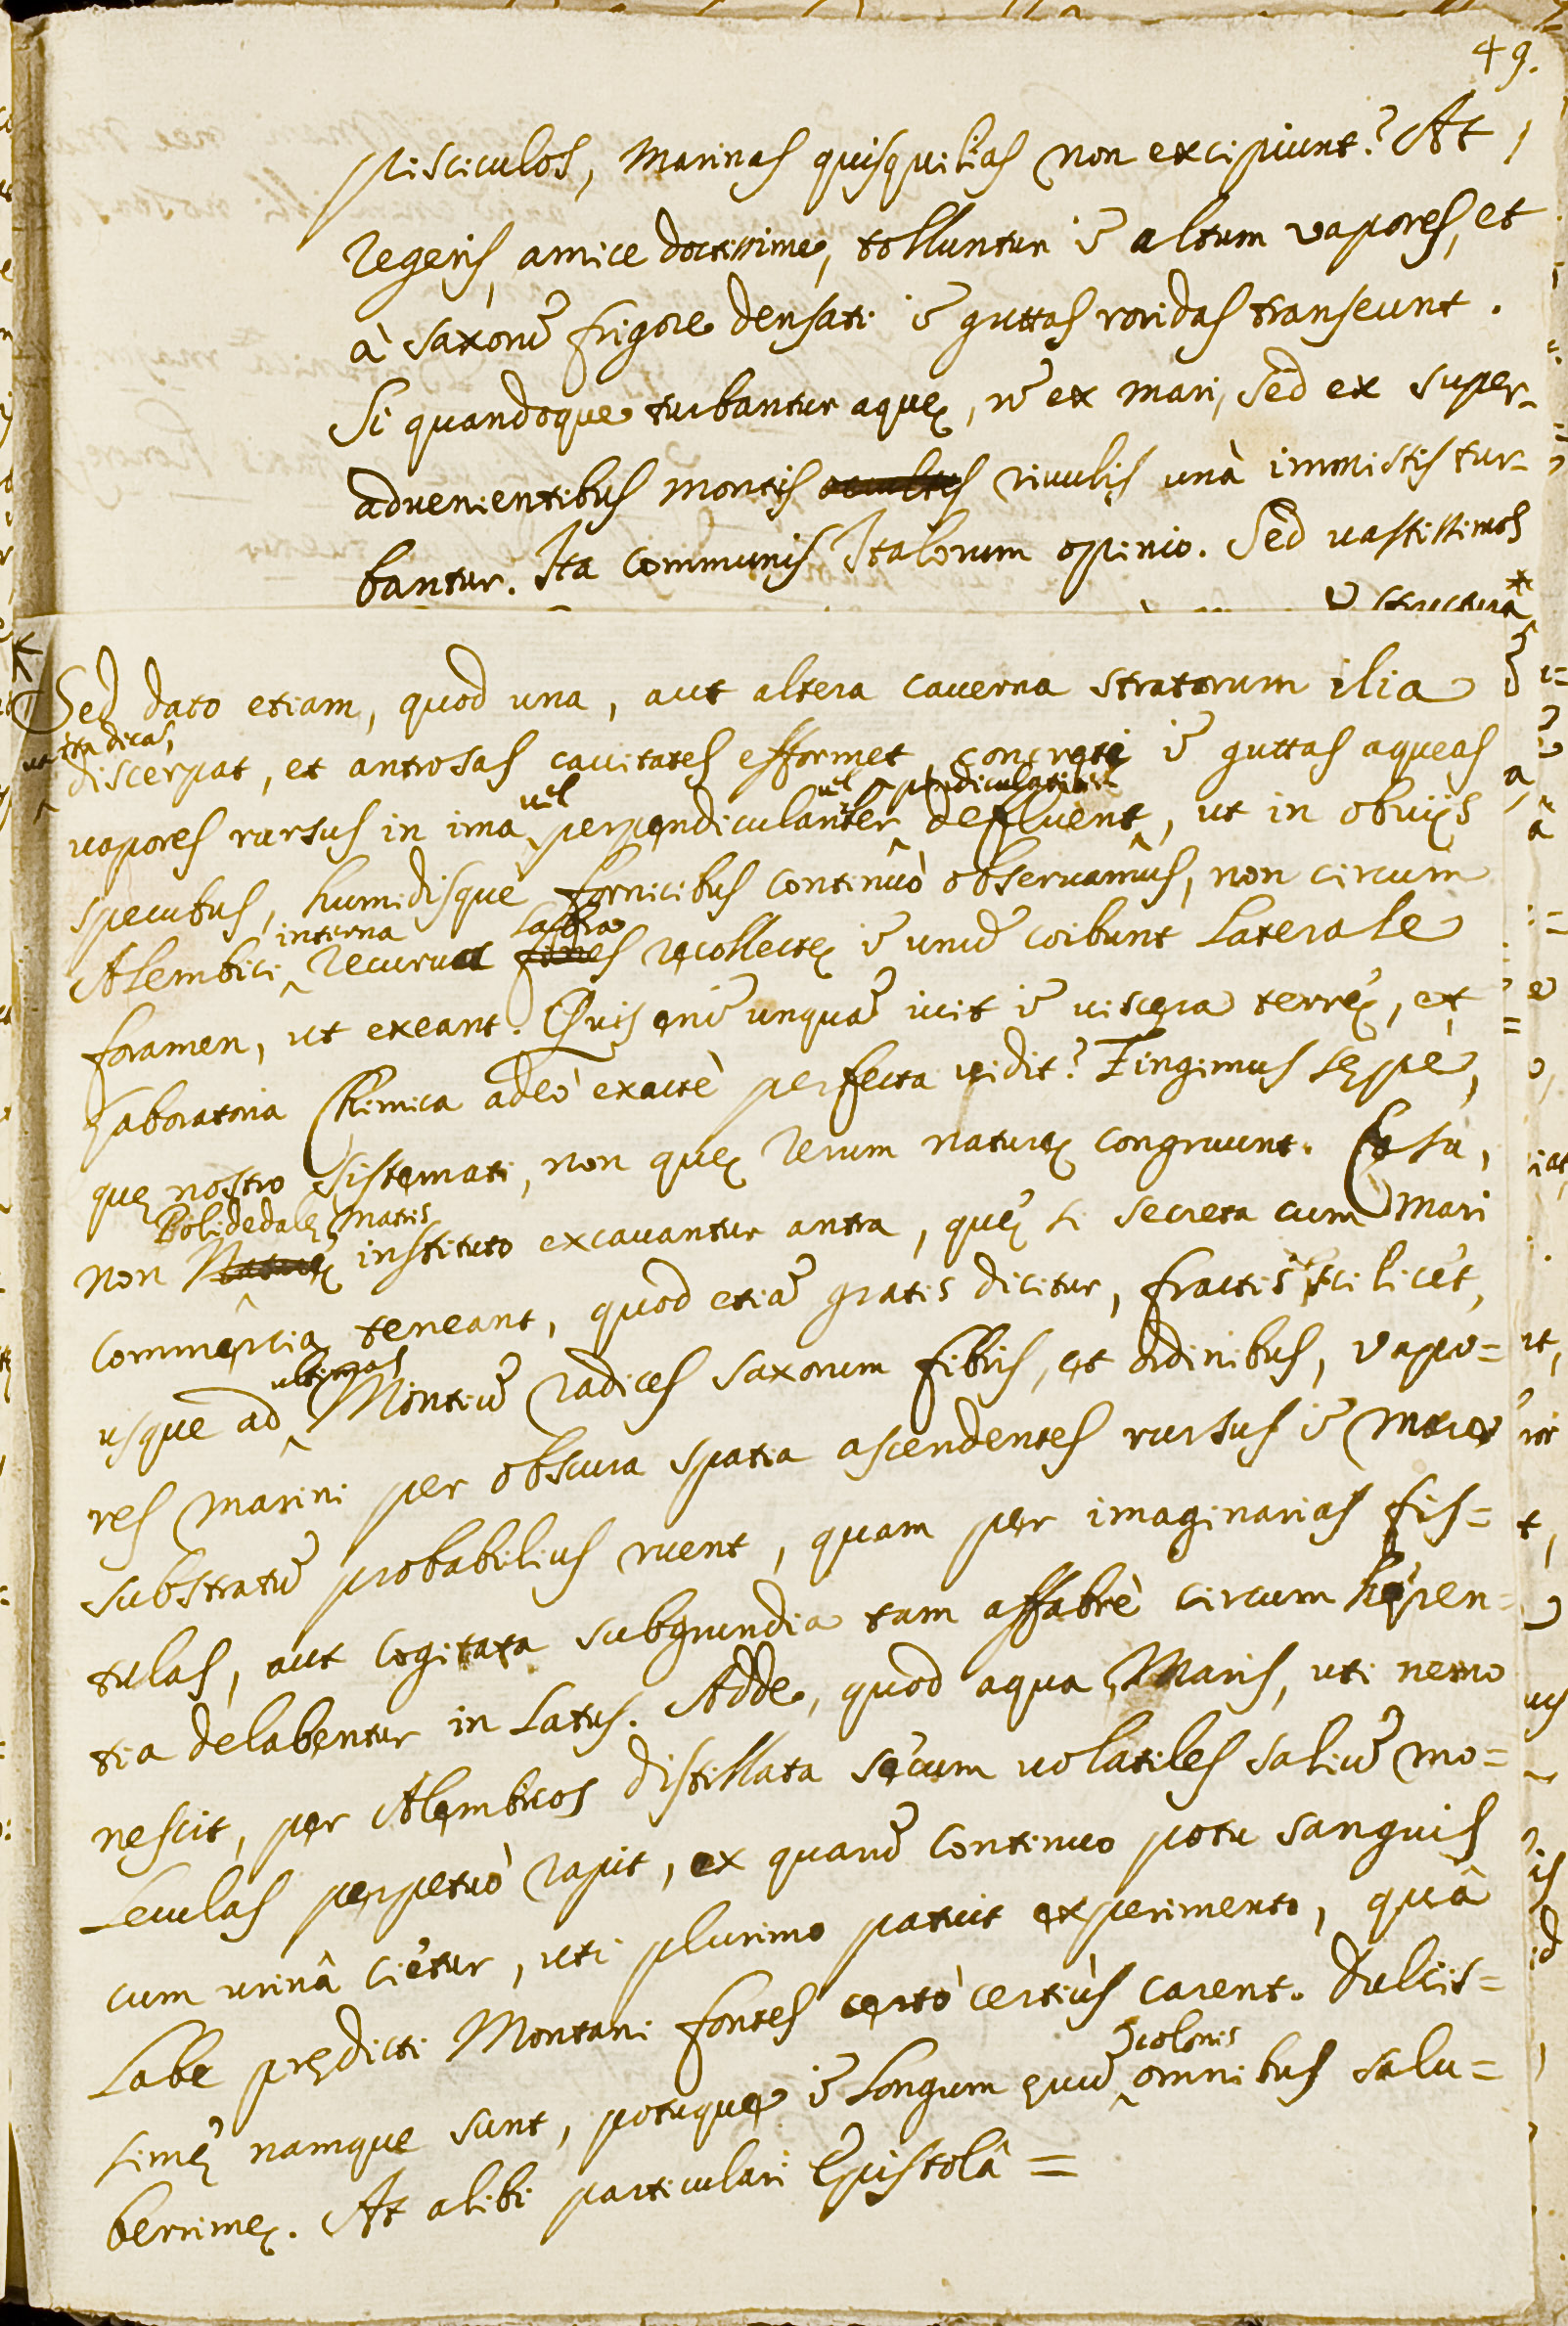 49.
pisciculos, marinas quisquilias non excipiunt? At
regeris, amice doctissime, tolluntur ī altum vapores, et
à saxorū frigore densati ī guttas roridas transeunt.
Si quandoque turbantur aquę, nō ex mari, sed ex super-
advenientibus montis rivulis unà immistis tur-
bantur. Ita communis Italorum opinio. Sed vastissimos
structurâ
Sed dato etiam, quod una, aut altera caverna stratorum ilia
ut ita dicas,
discerpat, et antrosas cavitates efformet, concreti ī guttas aqueas
vel vel
vapores rursus in ima perpendiculariter defluent, ut in obvijs
specubus, humidisque fornicibus continuò observamus, non circum
interna labra
Alembici recurva recollectę ī unū coibunt laterale
foramen, ut exeant. Quis enī unquā ivit ī viscera terrę, et
laboratoria Chimica adeò exactè perfecta vidit? Fingimus sępe,
quę nostro sistemati, non quę rerum naturę congruunt. Casu,
Polidedalę Matris
non Naturę instituto excavantur antra, quę si secreta cum mari
commercia teneant, quod etiā gratis dicitur, fractis scilicet,
ultimas
usque ad Montiū radices saxorum fibris, et ordinibus, vapo=
res marini per obscura spatia ascendentes rursus ī mare
substratū probabilius ruent, quam per imaginarias fis=
tulas, aut cogitata subgrundia tam affabrè circum hęren=
tia delabentur in latus. Adde, quod aqua Maris, uti nemo
nescit, per Alembicos distillata secum volatiles saliū mo=
leculas perpetuò rapit, ex quarū continuo potu sanguis
cum urinâ cietur, uti plurimo patuit experimento, quâ
labe prędicti Montani fontes certò certiùs carent. Dulcis=
colonis
simę namque sunt, potuque ī longum ęvū omnibus salu=
berrimę. At alibi particulari Epistolâ =